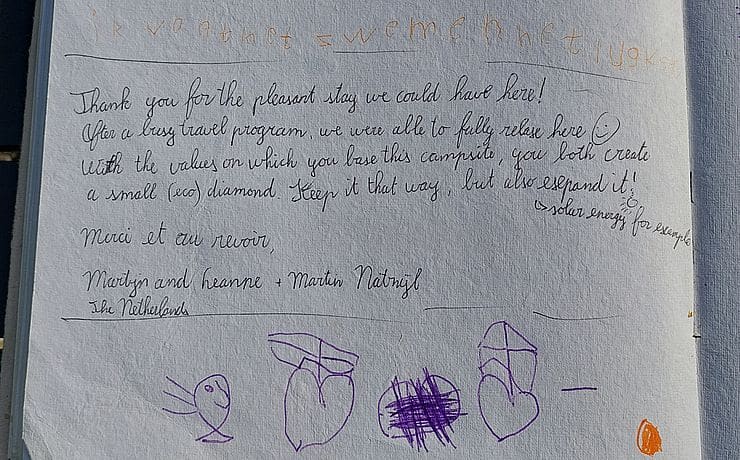 ik vont het zwemen het lyukst
Thank you for the pleasant stay we could have here!
After a busy travel program, we were able to fully relaxe here
With the values on which you base this campsite, you both create
a small (eco) diamond. Keep it that way, but also esepand it!
↳ solar energy for example
Merci et au revoir,
Martijn and Leanne + Martin Natrijl
The Netherlands